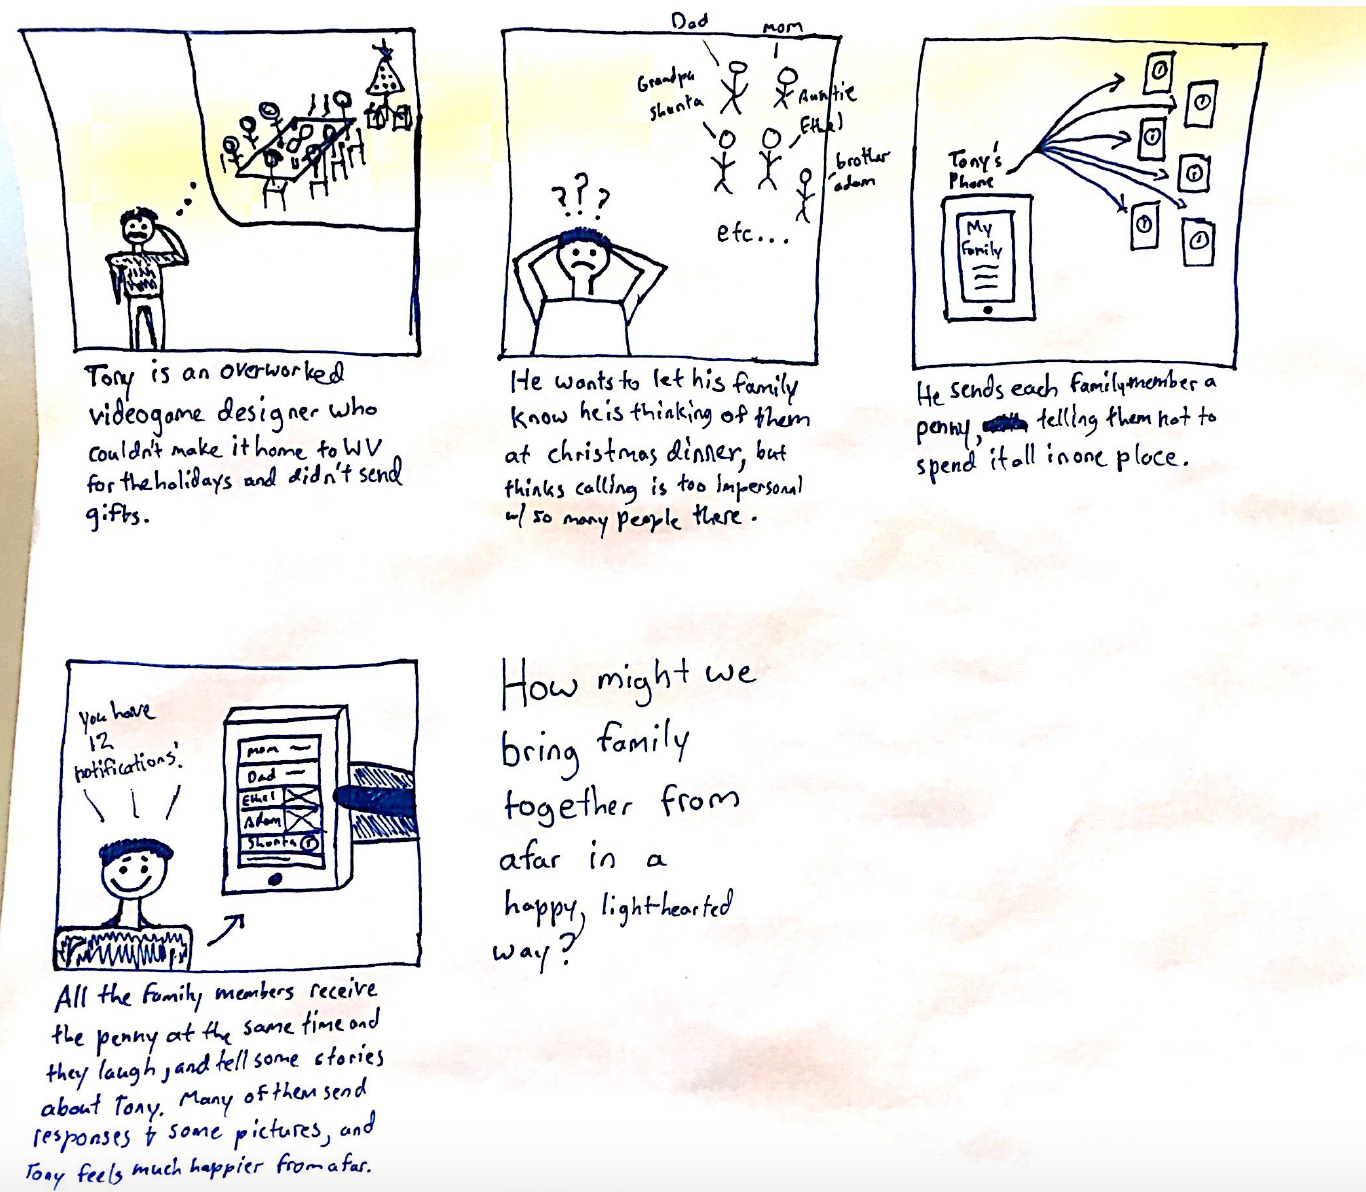 Tony is an overworked
videogame designer who
couldn't make it home to WV
for the holidays and didn't send
gifts.
Dad
mom
Grandpa
Shunta
Auntie
Ethel
brother
adam
???
etc...
He wants to let his family
know he is thinking of them
at christmas dinner, but
thinks calling is too impersonal
w/ so many people there.
Tony's
Phone
My
Family
He sends each family member a
penny, telling them not to
spend it all in one place.
You have
12
notifications!
mom
Dad
Ethel
Adam
Shunta
All the family members receive
the penny at the same time and
they laugh, and tell some stories
about Tony. Many of them send
responses & some pictures, and
Tony feels much happier from afar.
How might we
bring family
together from
afar in a
happy, light-hearted
way?